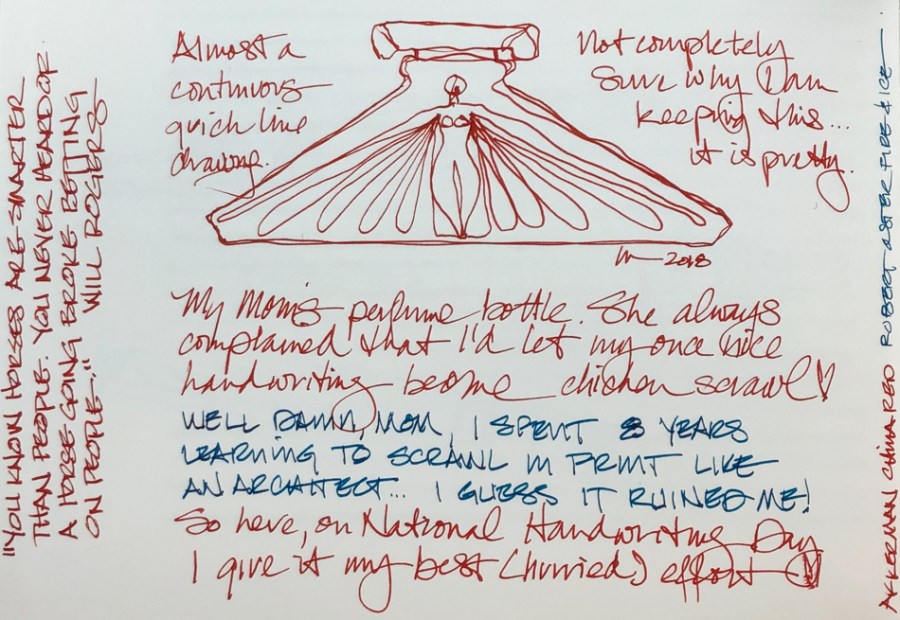 "YOU KNOW HORSES ARE SMARTER
THAN PEOPLE. YOU NEVER HEARD OF
A HORSE GOING BROKE BETTING
ON PEOPLE..." WILL ROGERS
Almost a
continuous
quick line
drawing.
Not completely
sure why I am
keeping this...
it is pretty.
2018
My Mom's perfume bottle. She always
complained that I'd let my once nice
handwriting become chicken scrawl
WELL DAMN, MOM, I SPENT 8 YEARS
LEARNING TO SCRAWL IN PRINT LIKE
AN ARCHITECT... I GUESS IT RUINED ME!
So here, on National Handwriting Day
I give it my best (hurried) effort
AKKERMAN CHINA RED ROBERT OSTER FIRE & ICE